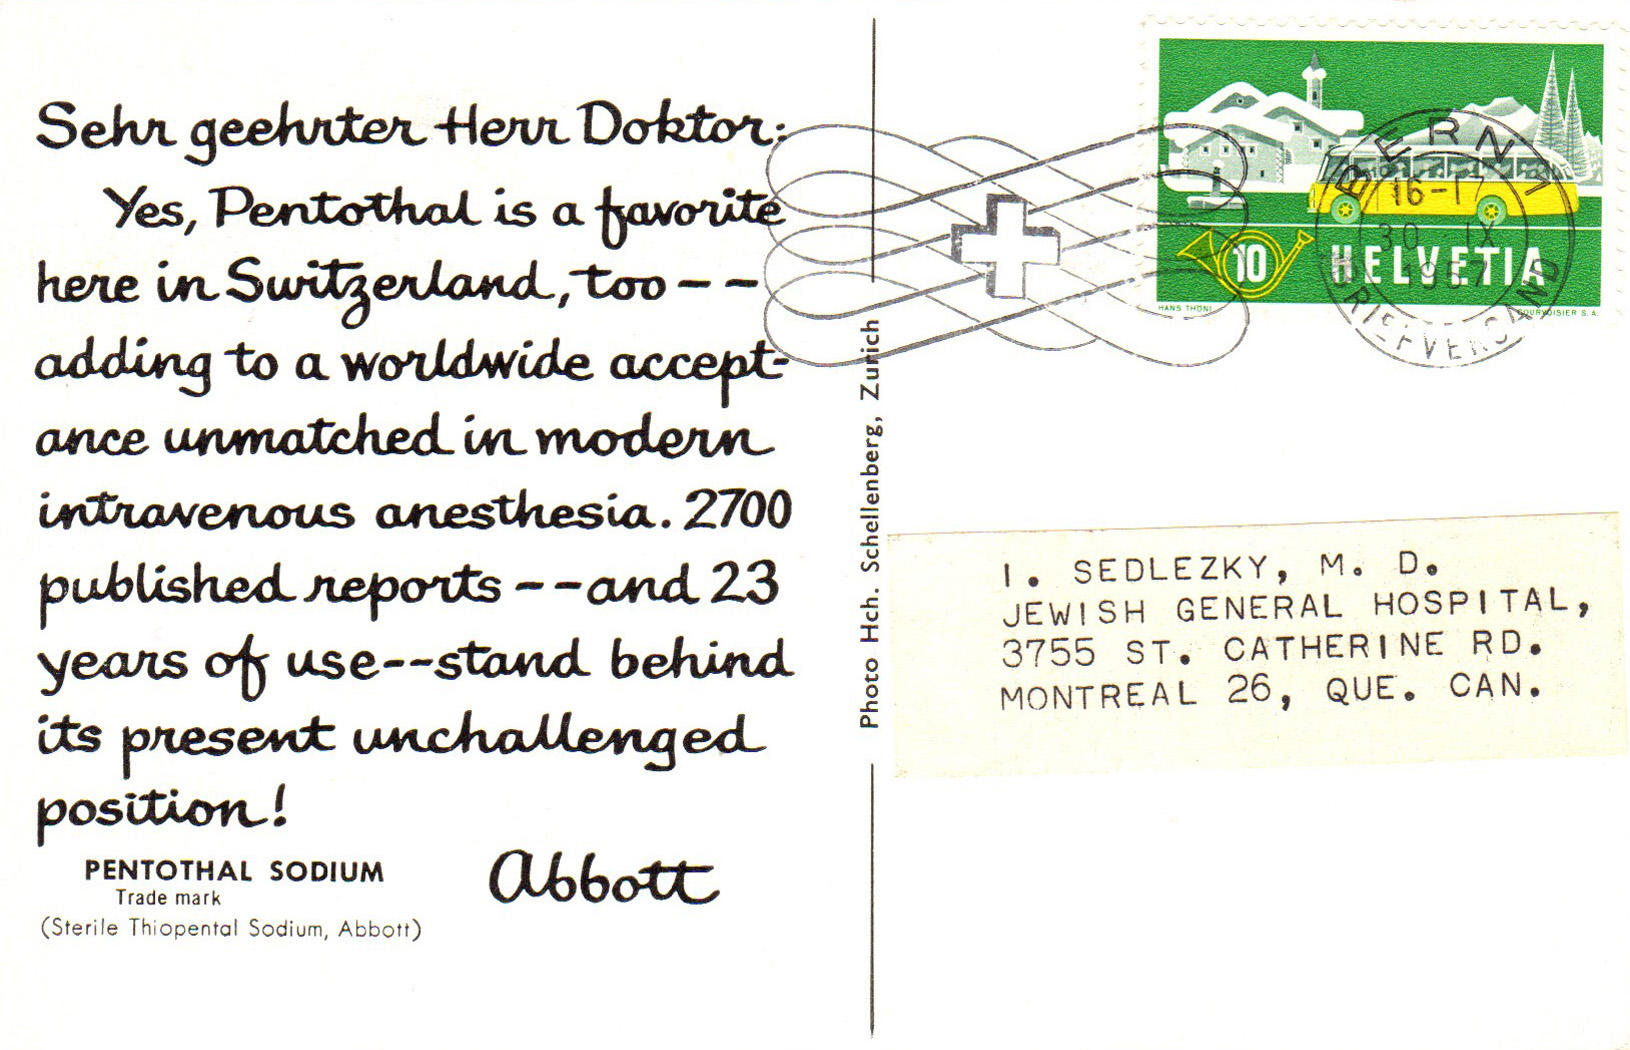 Sehr geehrter Herr Doktor:
Yes, Pentothal is a favorite
here in Switzerland, too--
adding to a worldwide accept-
ance unmatched in modern
intravenous anesthesia. 2700
published reports--and 23
years of use--stand behind
its present unchallenged
position!
Abbott
PENTOTHAL SODIUM
Trade mark
(Sterile Thiopental Sodium, Abbott)
Photo Hch. Schellenberg, Zurich
BERN 1
16-17
30. IX
1957
BRIEFVERSAND
10 HELVETIA
HANS THÖNI
COURVOISIER S.A.
I. SEDLEZKY, M. D.
JEWISH GENERAL HOSPITAL,
3755 ST. CATHERINE RD.
MONTREAL 26, QUE. CAN.